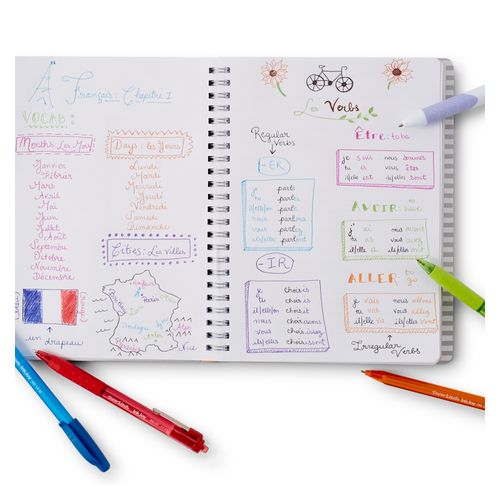 Français: Chapitre I
VOCAB:
Months: Les
Janvier
Février
Mars
Avril
Mai
Juin
Juillet
Août
Septembre
Octobre
Novembre
Décembre
Days: les Jours
Lundi
Mardi
Mercredi
Jeudi
Vendredi
Samedi
Dimanche
Cities: Les Villes
Paris
Nice
un drapeau
Les Verbs
Regular
Verbs
-ER
je parle
tu parles
il/elle/on parle
nous parlons
vous parlez
ils/elles parlent
-IR
je choisis
tu choisis
il/elle/on choisit
nous choisissons
vous choisissez
ils/elles choisissent
Être: to be
je suis nous sommes
tu es vous êtes
il/elle est ils/elles sont
AVOIR: to have
j'ai nous avons
tu as vous avez
il/elle a ils/elles ont
ALLER to go
je vais nous allons
tu vas vous allez
il/elle va ils/elles vont
Irregular
Verbs
Paper Mate InkJoy
Paper Mate InkJoy
InkJoy